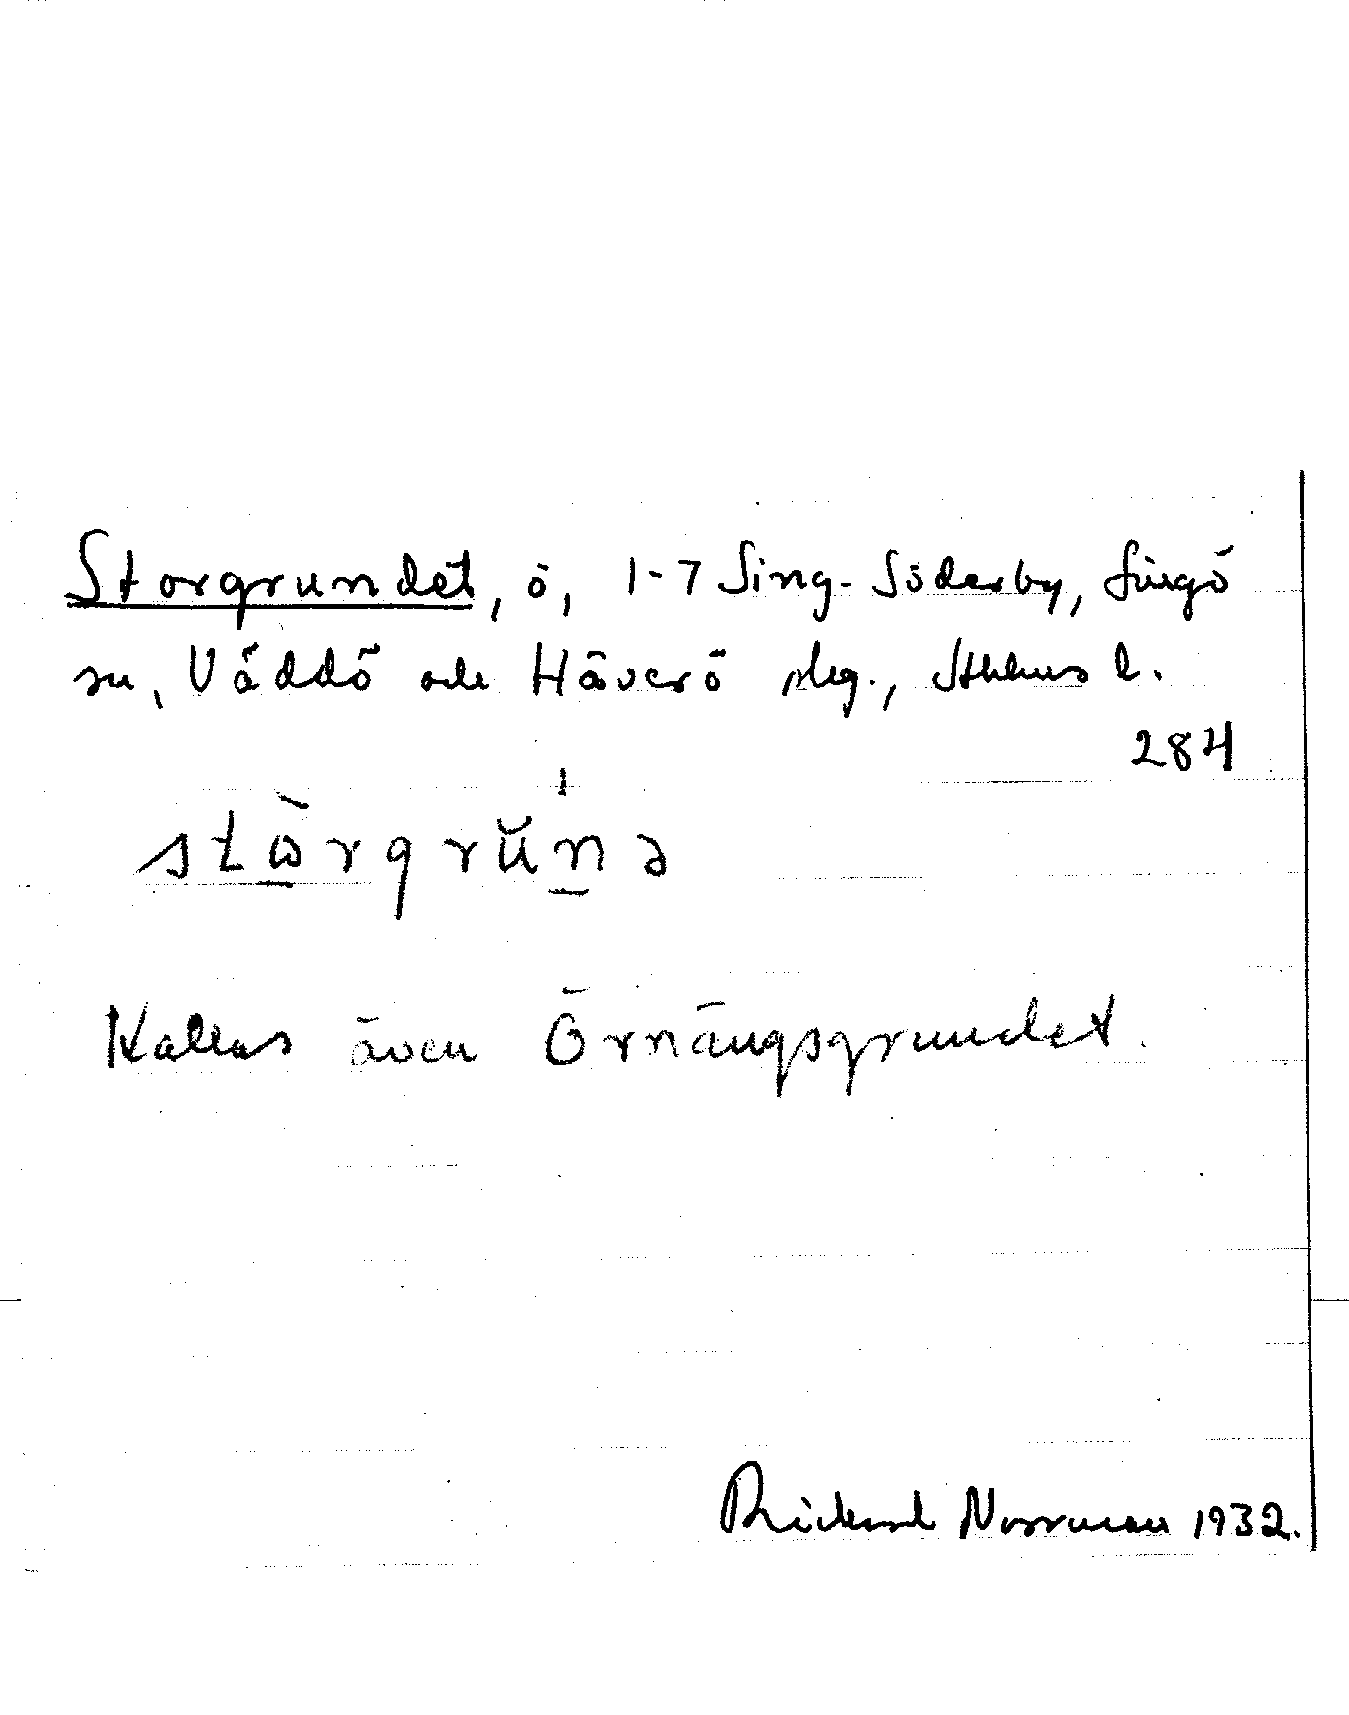 Storgrundet, ö, 1-7 Sing-Söderby, Singö
sn, Väddö och Häverö skg., Sthlms l.
284
stὼ̱rgrŭṉə
Kallas även Örnängsgrundet.
Rickard Norrman 1932.